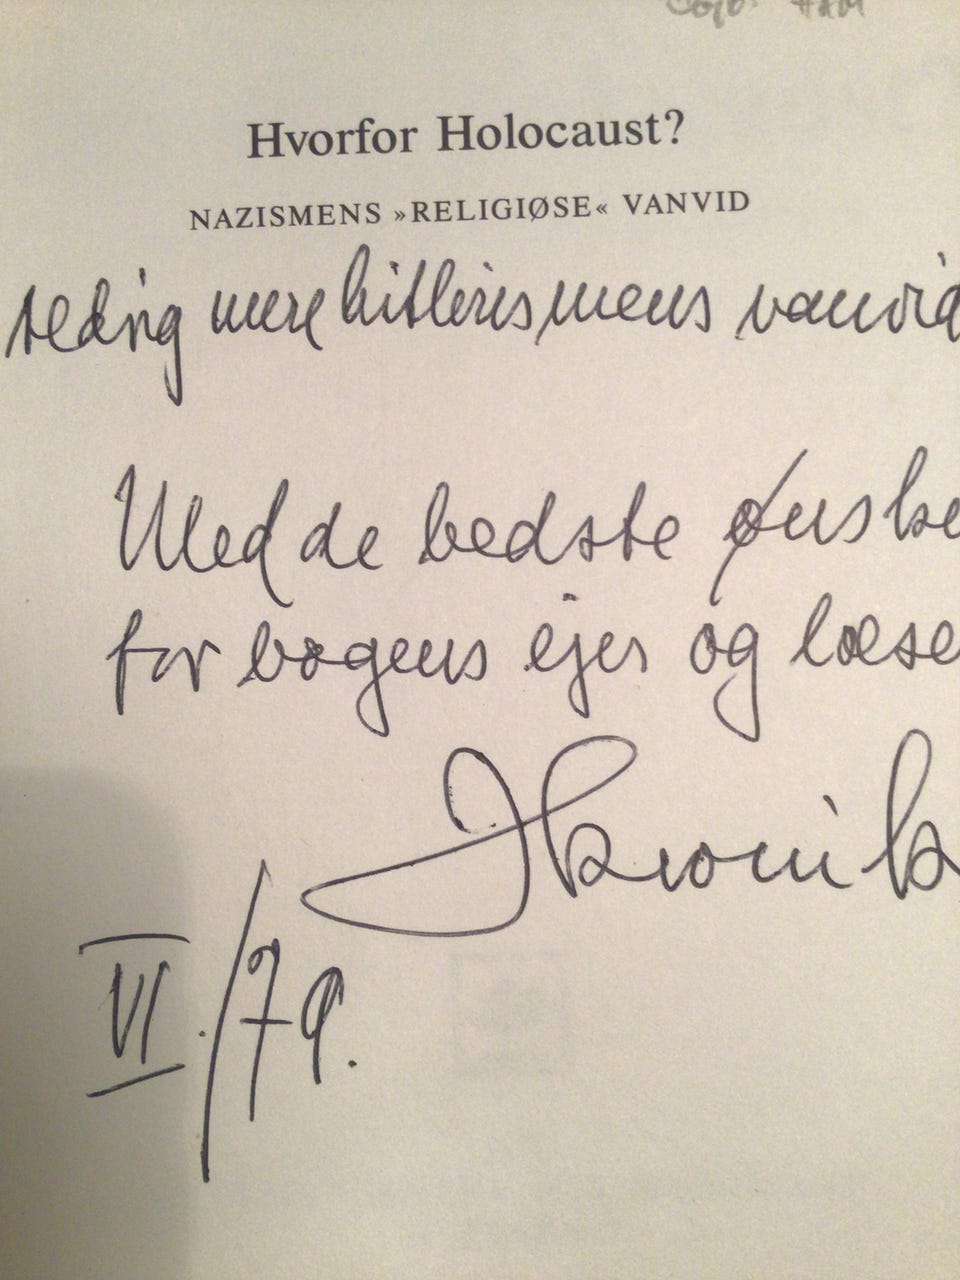 Hvorfor Holocaust?
NAZISMENS »RELIGIØSE« VANVID
aldrig mere hitlerismens vanvid
Med de bedste ønske
for bogens ejer og læse
JKronik
VI./79.